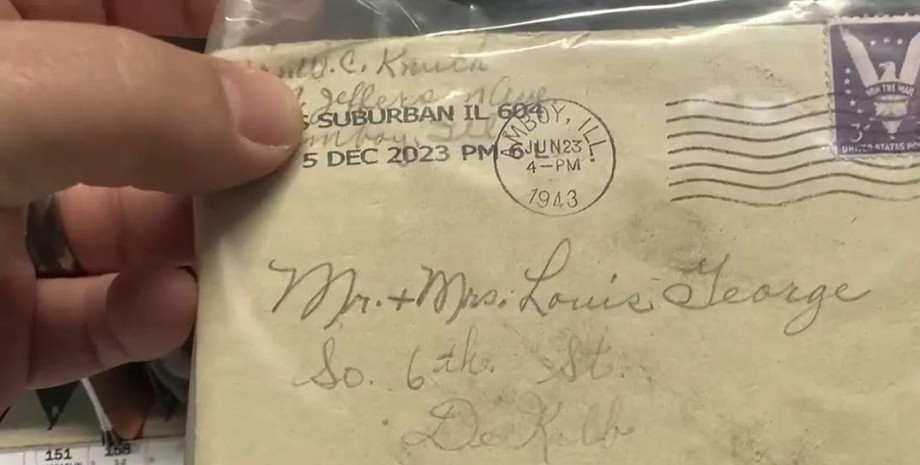 W.C. Kmitch
Jeffers n Ave
S SUBURBAN IL 604
mboy, Ill
5 DEC 2023 PM 6 L
AMBOY, ILL.
JUN 23
4-PM
1943
WIN THE WAR
3¢
UNITED STATES PO
Mr. + Mrs. Louis George
So. 6th. St.
De Kalb
151
158